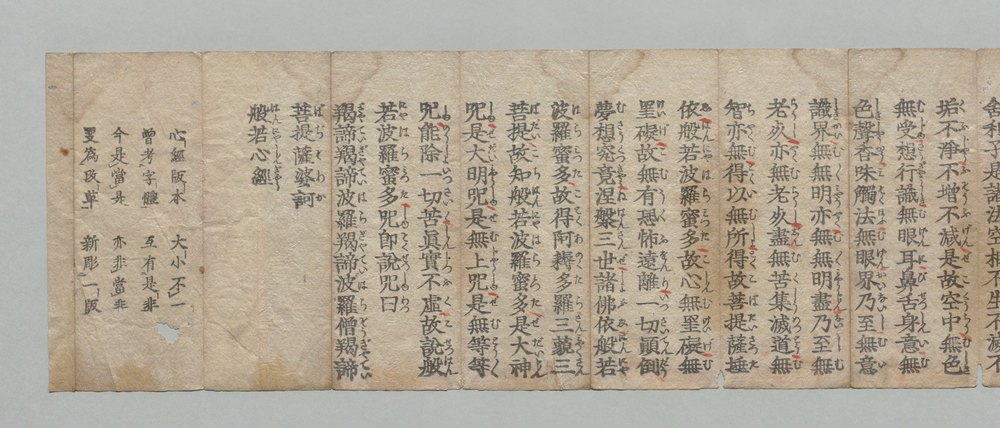 舍利子是諸法空相不生不滅不
垢不淨不增不减是故空中無色
無受想行識無眼耳鼻舌身意無
色聲香味觸法無眼界乃至無意
識界無無明亦無無明盡乃至無
老死亦無老死盡無苦集滅道無
智亦無得以無所得故菩提薩埵
依般若波羅蜜多故心無罣礙無
罣礙故無有恐怖遠離一切顛倒
夢想究竟涅槃三世諸佛依般若
波羅蜜多故得阿耨多羅三藐三
菩提故知般若波羅蜜多是大神
咒是大明咒是無上咒是無等等
咒能除一切苦眞實不虛故說般
若波羅蜜多咒卽說咒曰
羯諦羯諦波羅羯諦波羅僧羯諦
菩提薩婆訶
般若心經
心經版本 大小不一
曾考字體 互有是非
今是當是 亦非當非
爰爲改草 新彫一版